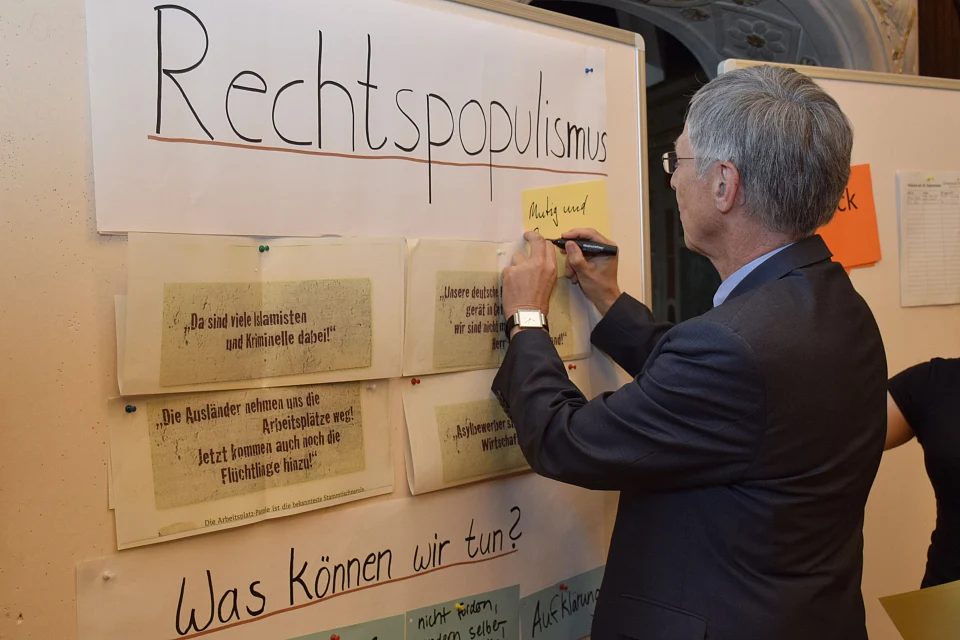 Rechtspopulismus
Mutig und
„Da sind viele Islamisten
und Kriminelle dabei!“
„Unsere deutsche
gerät in
wir sind nicht
Herr
„Die Ausländer nehmen uns die
Arbeitsplätze weg!
Jetzt kommen auch noch die
Flüchtlinge hinzu!“
Die Arbeitsplatz-Parole ist die bekannteste Stammtischparole
„Asylbewerber
Wirtschaft
Was können wir tun?
nicht fordern,
sondern selber
Aufklärung
ck